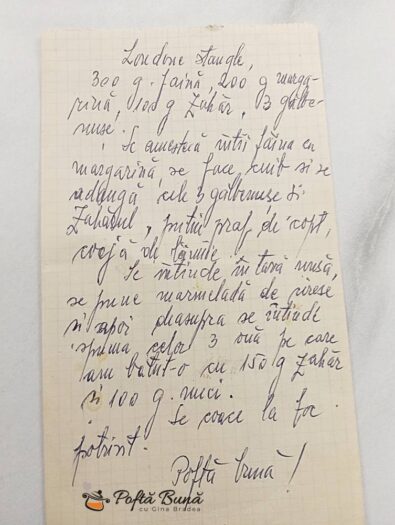 Londone Stangle,
300 g. faină, 200 g marga-
rină, 100 g zahăr, 3 gălbe-
nuse.
Se amestecă intîi făina cu
margarină, se face cuib si se
adaugă cele 3 gălbenuse si
zahărul, puțin praf de copt,
coajă de lămîie.
Se intinde în tavă unsă,
se pune marmeladă de cirese
si apoi deasupra se intinde
spuma celor 3 ouă pe care
am batut-o cu 150 g zahăr
si 100 g. nuci.
Se coace la foc
potrivit.
Poftă bună!
Poftă Bună
cu Gina Bradea